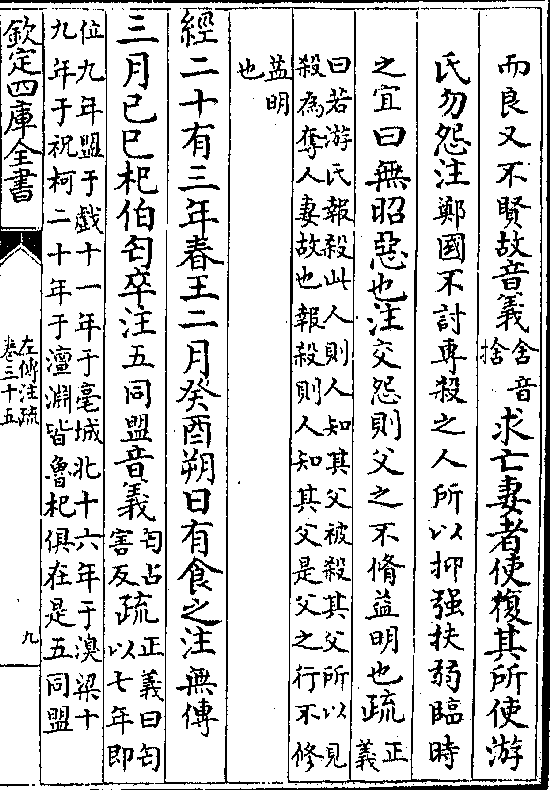 而良又不賢故音義舍音捨求亡妻者使復其所使游
氏勿怨注鄭國不討專殺之人所以抑强扶弱臨時
之宜曰無昭惡也注交怨則父之不脩益明也疏正義
曰若游氏報殺此人則人知其父被殺其父所以見
殺為奪人妻故也報殺則人知其父是父之行不修
益明
也
經二十有三年春王二月癸酉朔日有食之注無傳
三月己巳杞伯匄卒注五同盟音義匄古害反疏正義曰匄以七年即
位九年盟于戲十一年于亳城北十六年于溴梁十
九年于祝柯二十年于澶淵皆魯杞俱在是五同盟
欽定四庫全書
左傳注疏
卷三十五
九